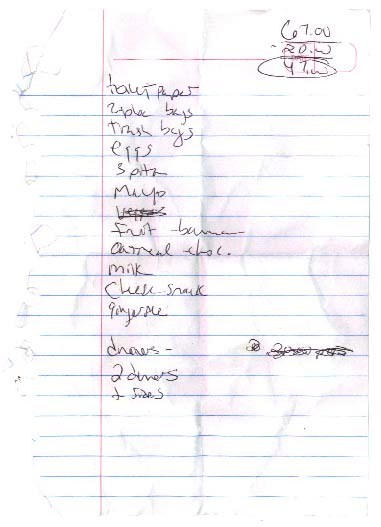 67.00
- 20.00
47.00
toilet paper
ziploc bags
trash bags
eggs
Mayo
veggies
fruit - banana
oatmeal choc.
milk
cheese snack
gingerale
dinners -
2 dinners
2 sides